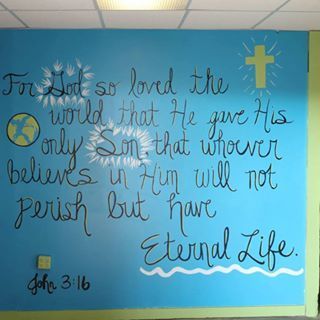 For God so loved the
world that He gave His
only Son, that whoever
believes in Him will not
perish but have
Eternal Life.
John 3:16